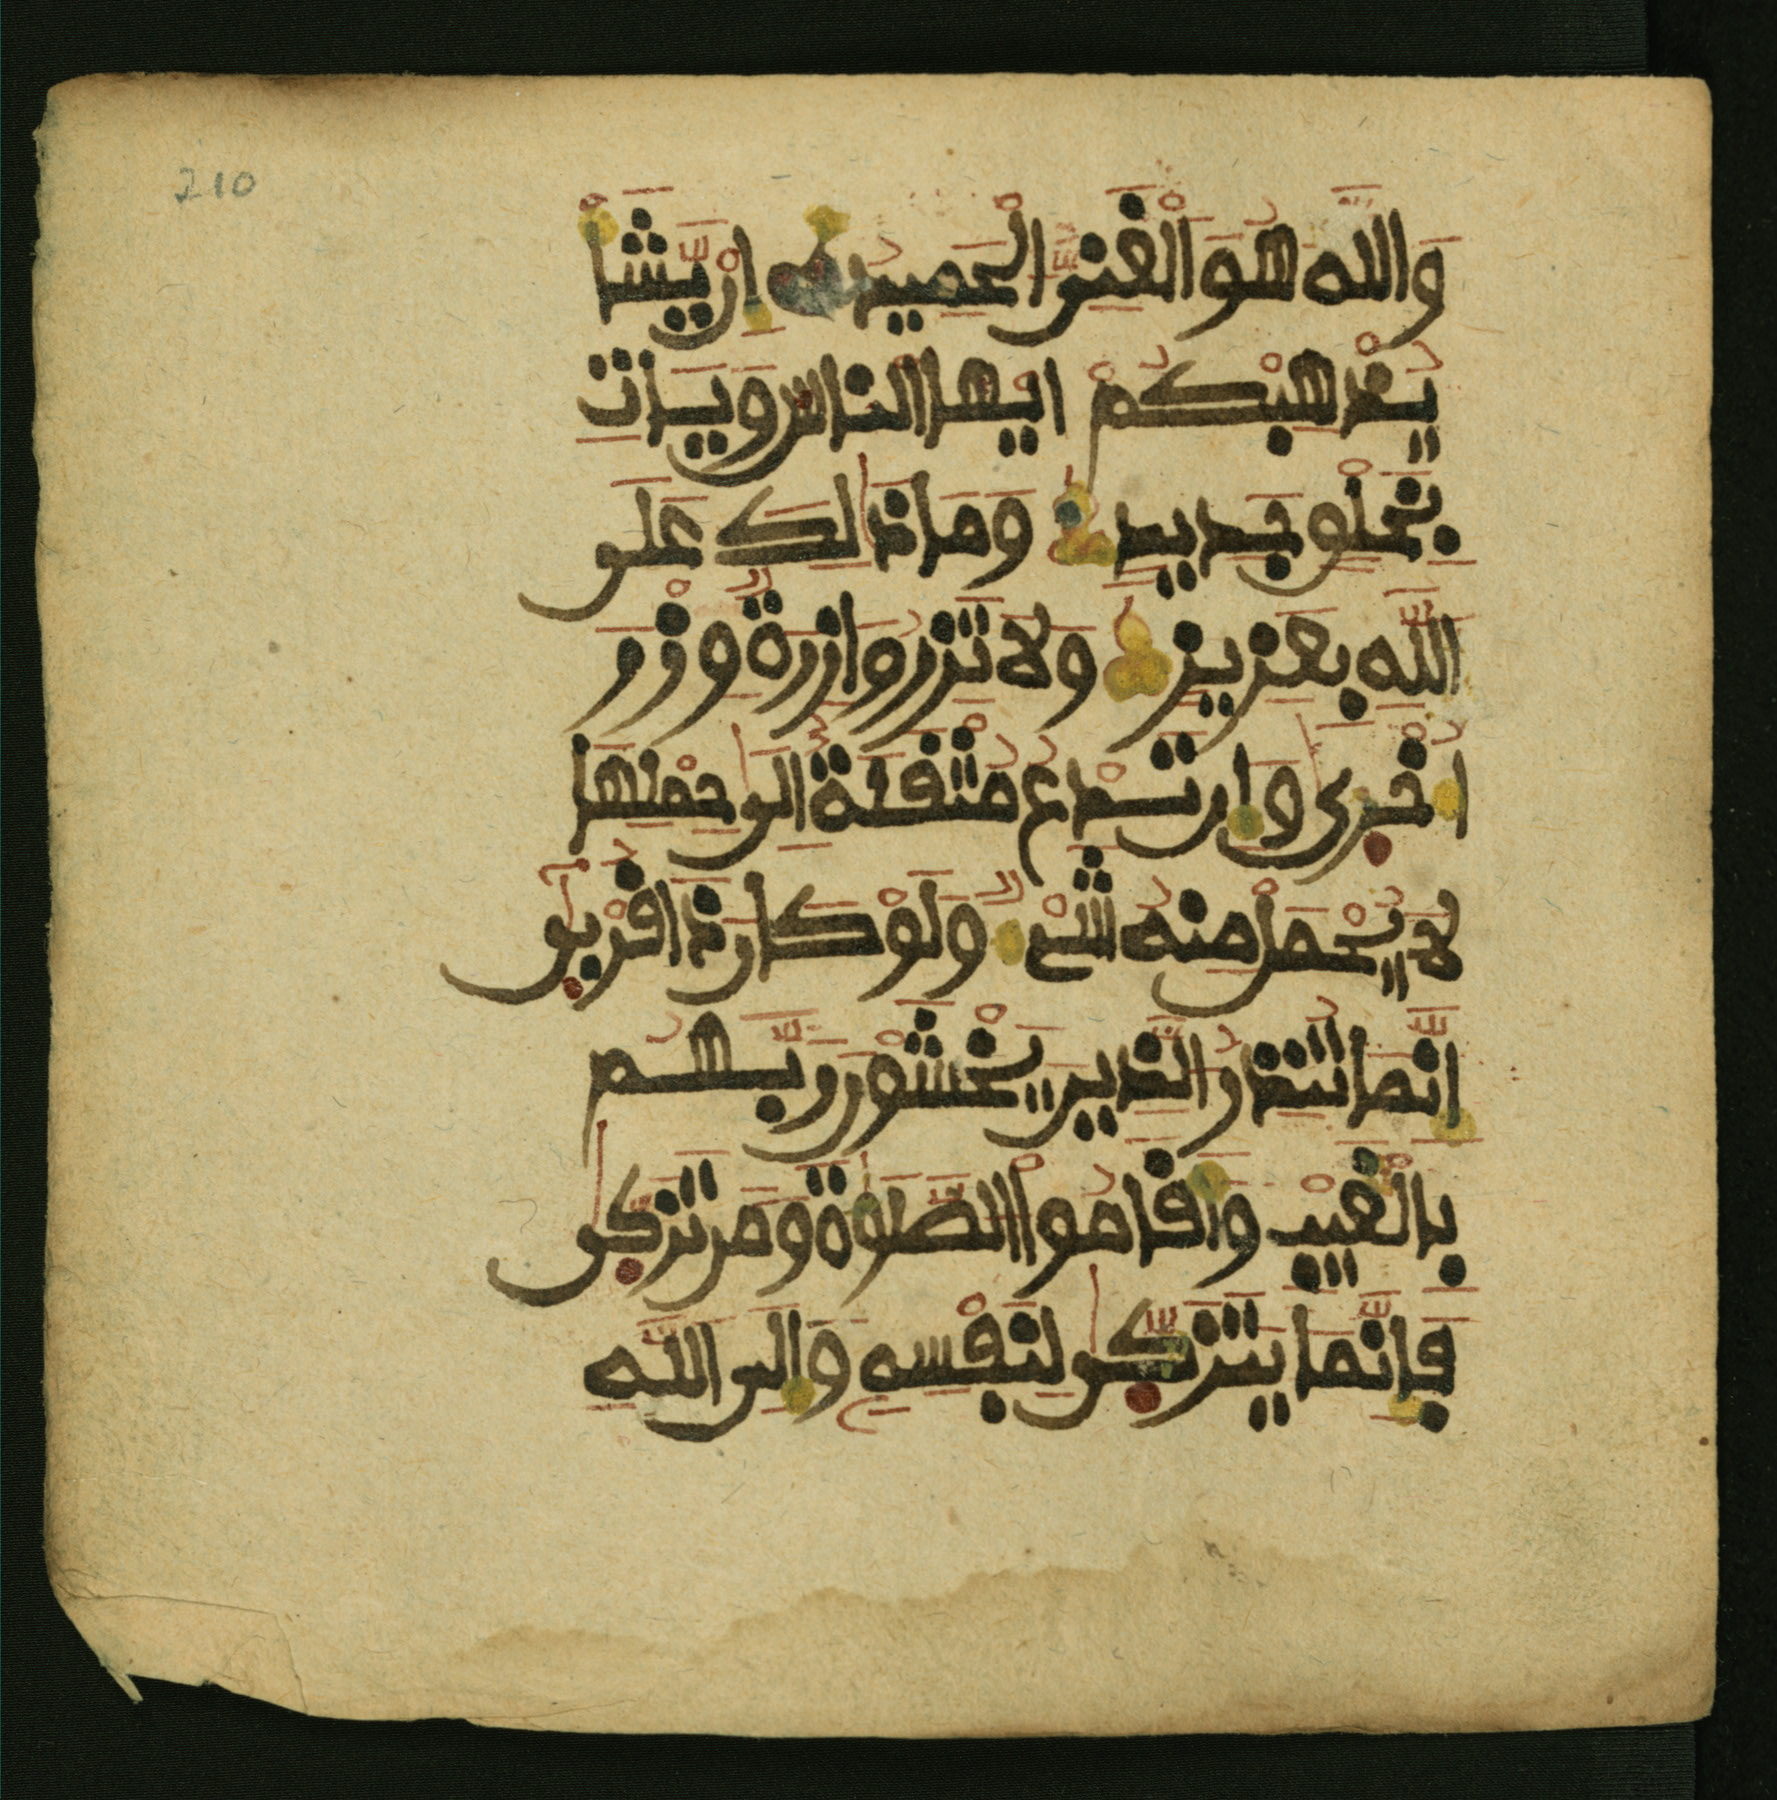 210
وَاللَّهُ هُوَ الْغَنِيُّ الْحَمِيدُ إِنْ يَّشَأْ
يُذْهِبْكُمْ أَيُّهَا النَّاسُ وَيَاتِ
بِخَلْقٍ جَدِيدٍ وَمَا ذَٰلِكَ عَلَى
اللَّهِ بِعَزِيزٍ وَلَا تَزِرُ وَازِرَةٌ وِزْرَ
أُخْرَىٰ وَإِن تَدْعُ مُثْقَلَةٌ إِلَىٰ حِمْلِهَا
لَا يُحْمَلْ مِنْهُ شَيْءٌ وَلَوْ كَانَ ذَا قُرْبَىٰ
إِنَّمَا تُنذِرُ الَّذِينَ يَخْشَوْنَ رَبَّهُم
بِالْغَيْبِ وَأَقَامُوا الصَّلَوٰةَ وَمَن تَزَكَّىٰ
فَإِنَّمَا يَتَزَكَّىٰ لِنَفْسِهِ وَإِلَى اللَّهِ